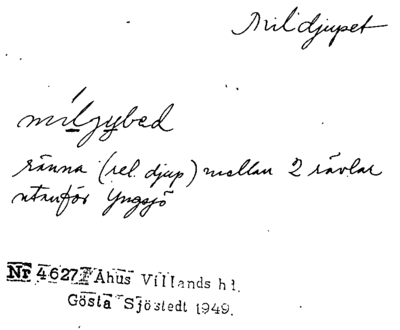 Mildjupet
míljybed
ränna (rel. djup) mellan 2 rävlar
utanför Yngsjö
Nr 4627 Åhus Villands hd.
Gösta Sjöstedt 1949.